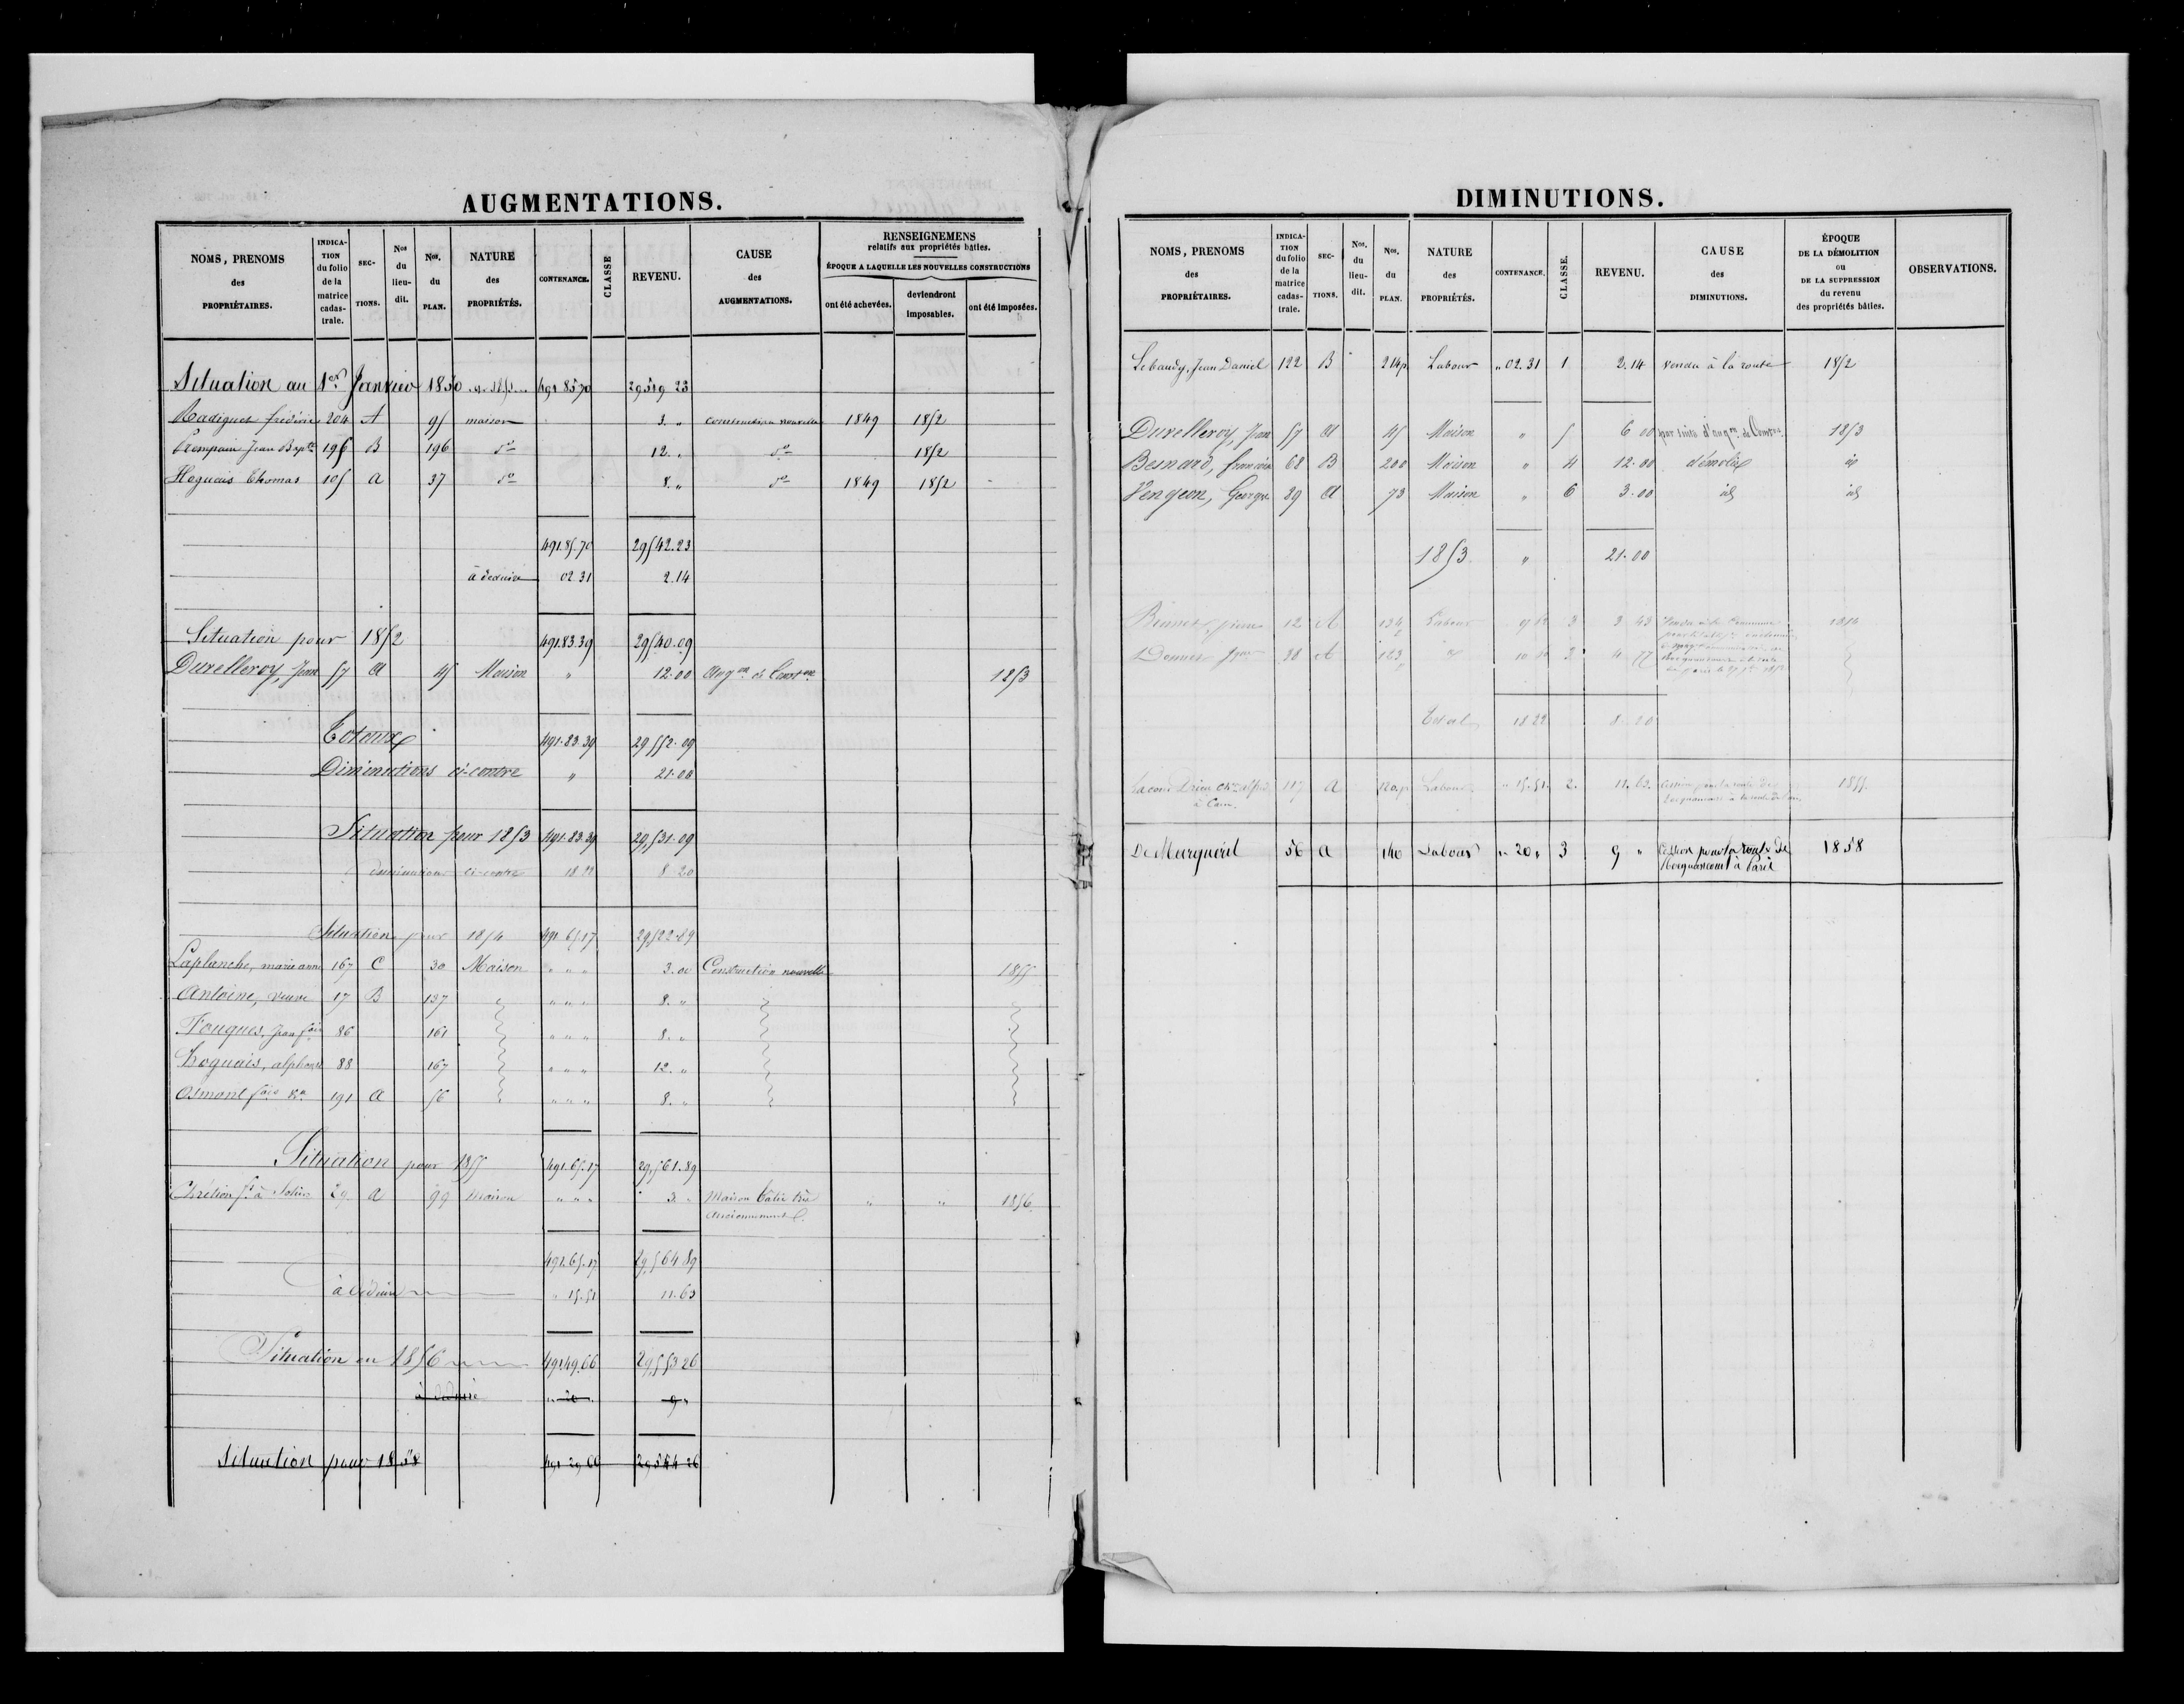 AUGMENTATIONS.
NOMS, PRENOMS des PROPRIÉTAIRES.
INDICATION du folio de la matrice cadastrale.
SECTIONS.
Nos du lieu-dit.
Nos. du PLAN.
NATURE des PROPRIÉTÉS.
CONTENANCE.
CLASSE
REVENU.
CAUSE des AUGMENTATIONS.
RENSEIGNEMENS
relatifs aux propriétés bâties.
ÉPOQUE A LAQUELLE LES NOUVELLES CONSTRUCTIONS
ont été achevées.
deviendront imposables.
ont été imposées.
Situation au 1er Janvier 1850 491 85 70 29519 23
Madiguet frédéric 204 A 95 maison 3. " construction nouvelle 1849 1852
Trempain Jean Bapte 196 B 196 do 12. " do 1852
Heguais Thomas 105 a 37 do 8. " do 1849 1852
491.85.70 29542.23
à déduire 02 31 2.14
Situation pour 1852 491.83.39 29540.09
Durelleroy, Jean 57 a 45 Maison " 12.00 Augon de Conston 1853
Totaux 491.83.39 29552.09
Diminutions ci-contre " 21.00
Situation pour 1853 491.83.39 29,531.09
diminution ci-contre 18 22 8 20
Situation pour 1854 491 65.17 29,522.89
Laplanche, marie anne 167 C 30 Maison " " " 3.00 Construction nouvelle 1855
Antoine, veuve 17 B 137 " " " 8. "
Fouques, Jean fois 86 161 " " " 8. "
Hoguais, alphonse 88 167 " " " 12. "
Osmont fois 191 a 56 " " " 8. "
Situation pour 1855 491.65.17 29,561.89
Chrétien à Soliers 29 a 99 maison " " " 3. " Maison bâtie très " " 1856
anciennement
491.65.17 29,564 89
à déduire " 15.51 11.63
Situation en 1856 491.49.66 29,553 26
à déduire " 20 " 9 "
Situation pour 1858 491 29 66 29544 26
DIMINUTIONS.
NOMS, PRENOMS des PROPRIÉTAIRES.
INDICATION du folio de la matrice cadastrale.
SECTIONS.
Nos. du lieu-dit.
Nos. du PLAN.
NATURE des PROPRIÉTÉS.
CONTENANCE.
CLASSE.
REVENU.
CAUSE des DIMINUTIONS.
ÉPOQUE DE LA DÉMOLITION ou DE LA SUPPRESSION du revenu des propriétés bâties.
OBSERVATIONS.
Lebaudy, Jean Daniel 122 B 214p Labour " 02.31 1 2.14 vendu à la route 1852
Durelleroy, Jean 57 a 45 Maison " 5 6 00 par suite d'augon de Constron 1853
Besnard, françois 68 B 200 Maison " 4 12.00 démolie id
Vengeon, George 89 a 73 Maison " 6 3.00 id id
1853 " 21.00
12 A 134p Labour 3 3 43 1854
38 A 123p 3 4 77
Total 18 22 8.20
117 a 120.p Labour " 15.51 2. 11.63 1855
à Caen
De Murquéril 56 a 140 Labour " 20 " 3 9 " Cession pour la route de 1858
à Paris